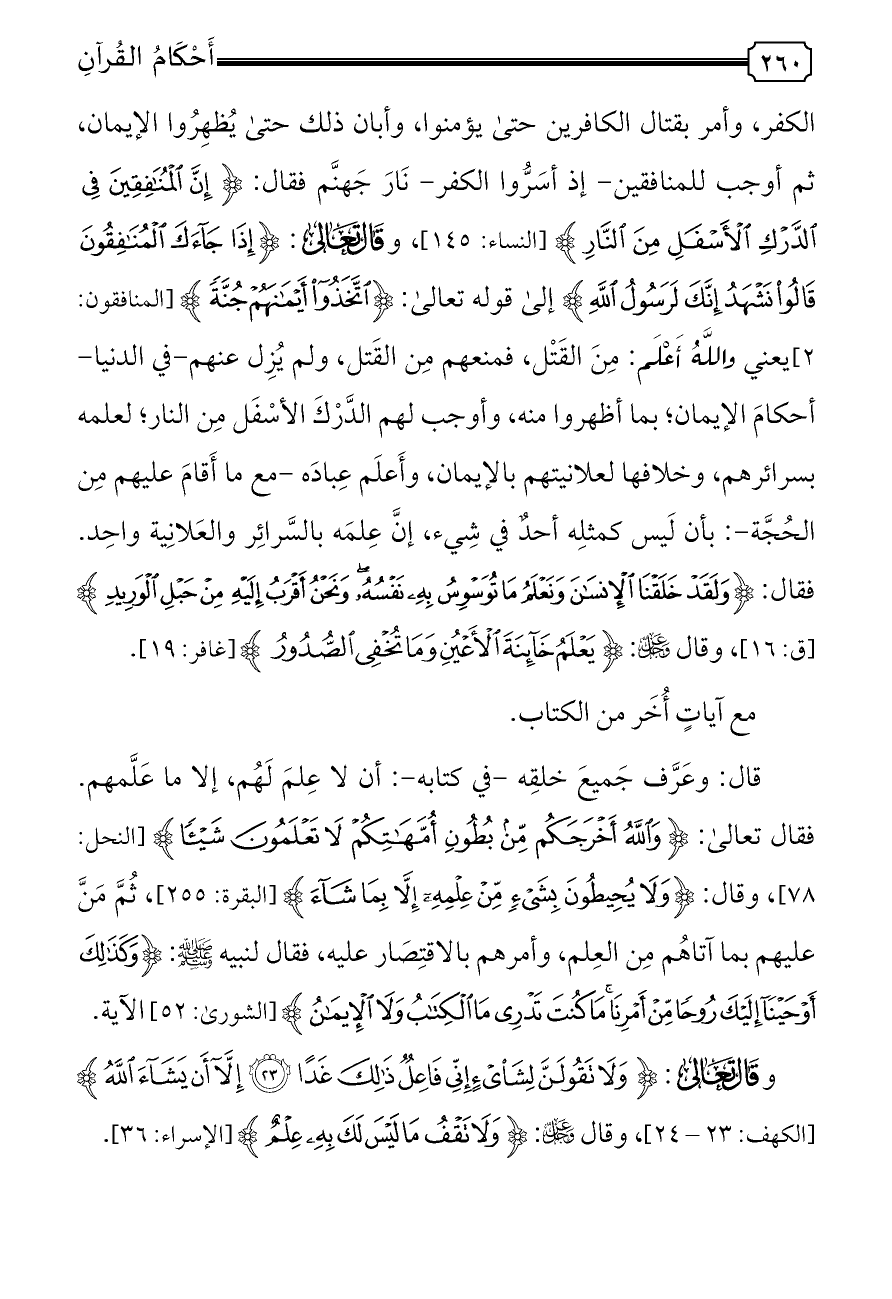 ٢٦٠ أَحْكَامُ القُرآنِ
الكفر، وأمر بقتال الكافرين حتىٰ يؤمنوا، وأبان ذلك حتىٰ يُظهِرُوا الإيمان،
ثم أوجب للمنافقين- إذ أسَرُّوا الكفر- نَارَ جَهنَّم فقال: ﴿ إِنَّ ٱلْمُنَٰفِقِينَ فِى
ٱلدَّرْكِ ٱلْأَسْفَلِ مِنَ ٱلنَّارِ ﴾ [النساء: ١٤٥]، و قَالَ تَعَالَىٰ : ﴿ إِذَا جَآءَكَ ٱلْمُنَٰفِقُونَ
قَالُوا۟ نَشْهَدُ إِنَّكَ لَرَسُولُ ٱللَّهِ ﴾ إلىٰ قوله تعالىٰ: ﴿ ٱتَّخَذُوٓا۟ أَيْمَٰنَهُمْ جُنَّةً ﴾ [المنافقون:
٢]يعني واللَّهُ أَعْلَم: مِنَ القَتْل، فمنعهم مِن القَتل، ولم يُزِل عنهم-في الدنيا-
أحكامَ الإيمان؛ بما أظهروا منه، وأوجب لهم الدَّرْكَ الأسْفَل مِن النار؛ لعلمه
بسرائرهم، وخلافها لعلانيتهم بالإيمان، وأَعلَم عِبادَه -مع ما أَقامَ عليهم مِن
الحُجَّة-: بأن لَيس كمثلِه أحدٌ في شِيء، إنَّ عِلمَه بالسَّرائِر والعَلانِية واحِد.
فقال: ﴿ وَلَقَدْ خَلَقْنَا ٱلْإِنسَٰنَ وَنَعْلَمُ مَا تُوَسْوِسُ بِهِۦ نَفْسُهُۥ ۖ وَنَحْنُ أَقْرَبُ إِلَيْهِ مِنْ حَبْلِ ٱلْوَرِيدِ ﴾
[ق: ١٦]، وقال ﷿: ﴿ يَعْلَمُ خَآئِنَةَ ٱلْأَعْيُنِ وَمَا تُخْفِى ٱلصُّدُورُ ﴾ [غافر: ١٩].
مع آياتٍ أُخَر من الكتاب.
قال: وعَرَّف جَميعَ خلقِه -في كتابه-: أن لا عِلمَ لَهُم، إلا ما عَلَّمهم.
فقال تعالىٰ: ﴿ وَٱللَّهُ أَخْرَجَكُم مِّنۢ بُطُونِ أُمَّهَٰتِكُمْ لَا تَعْلَمُونَ شَيْـًٔا ﴾ [النحل:
٧٨]، وقال: ﴿ وَلَا يُحِيطُونَ بِشَىْءٍ مِّنْ عِلْمِهِۦٓ إِلَّا بِمَا شَآءَ ﴾ [البقرة: ٢٥٥]، ثُمَّ مَنَّ
عليهم بما آتاهُم مِن العِلم، وأمرهم بالاقتِصَار عليه، فقال لنبيه ﷺ: ﴿ وَكَذَٰلِكَ
أَوْحَيْنَآ إِلَيْكَ رُوحًا مِّنْ أَمْرِنَا ۚ مَا كُنتَ تَدْرِى مَا ٱلْكِتَٰبُ وَلَا ٱلْإِيمَٰنُ ﴾ [الشورىٰ: ٥٢] الآية.
و قَالَ تَعَالَىٰ : ﴿ وَلَا تَقُولَنَّ لِشَا۟ىْءٍ إِنِّى فَاعِلٌ ذَٰلِكَ غَدًا ٢٣ إِلَّآ أَن يَشَآءَ ٱللَّهُ ﴾
[الكهف: ٢٣ – ٢٤]، وقال ﷿: ﴿ وَلَا تَقْفُ مَا لَيْسَ لَكَ بِهِۦ عِلْمٌ ﴾ [الإسراء: ٣٦].